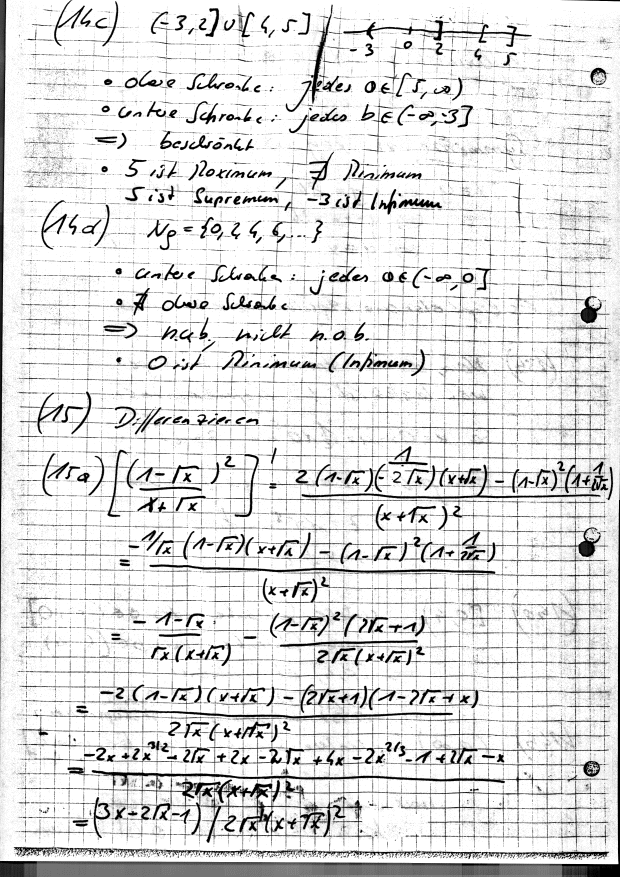 (14c) (-3,2]∪[4,5] -3 0 2 4 5
• obere Schranke: jedes a∈[5,∞)
• untere Schranke: jedes b∈(-∞,-3]
=> beschränkt
• 5 ist Maximum, ∄ Minimum
5 ist Supremum, -3 ist Infimum
(14d) Ng = {0,2,4,6,...}
• untere Schranken: jedes a∈(-∞,0]
• ∄ obere Schranke
=> n.u.b, nicht n.o.b.
• 0 ist Minimum (Infimum)
(15) Differenzieren
(15a) [(1-√x)²/(x+√x)]' = (2(1-√x)(-1/(2√x))(x+√x) - (1-√x)²(1+1/(2√x)))/(x+√x)²
= (-1/√x (1-√x)(x+√x) - (1-√x)²(1+1/(2√x)))/(x+√x)²
= (-1-√x)/(√x(x+√x)) - ((1-√x)²(2√x+1))/(2√x(x+√x)²)
= (-2(1-√x)(x+√x) - (2√x+1)(1-2√x+x))/(2√x(x+√x)²)
= (-2x+2x^(3/2)-2√x+2x-2√x+4x-2x^(2/3)-1+2√x-x)/(2√x(x+√x)²)
= (3x+2√x-1)/2√x(x+√x)²